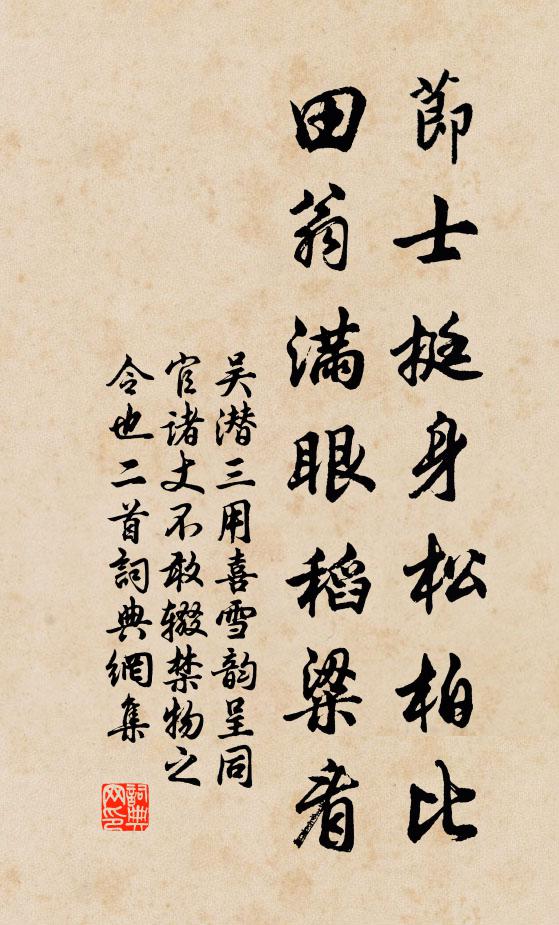 節士挺身松柏比
田翁滿眼稻粱看
吴潜三用喜雪韵呈同
官诸丈不敢辍禁物之
令也二首詞典網集
詞典網印